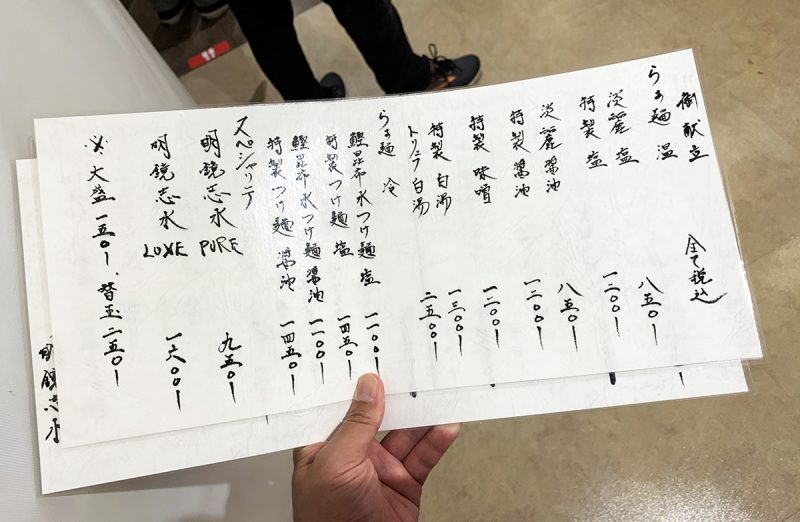 御献立 全て税込
らぁ麺 温
淡麗 塩 八五〇ー
特製 塩 一二〇〇ー
淡麗 醤油 八五〇ー
特製 醤油 一二〇〇ー
特製 味噌 一二〇〇ー
特製 白湯 一三〇〇ー
トリュフ白湯 二五〇〇ー
らぁ麺 冷
鰹昆布水つけ麺 塩 一一〇〇ー
特製つけ麺 塩 一四五〇ー
鰹昆布水つけ麺 醤油 一一〇〇ー
特製つけ麺 醤油 一四五〇ー
スペシャリテ
明鏡志水 PURE 九五〇ー
明鏡志水 LUXE 一六〇〇ー
※大盛一五〇ー、替玉二五〇ー
明鏡志水